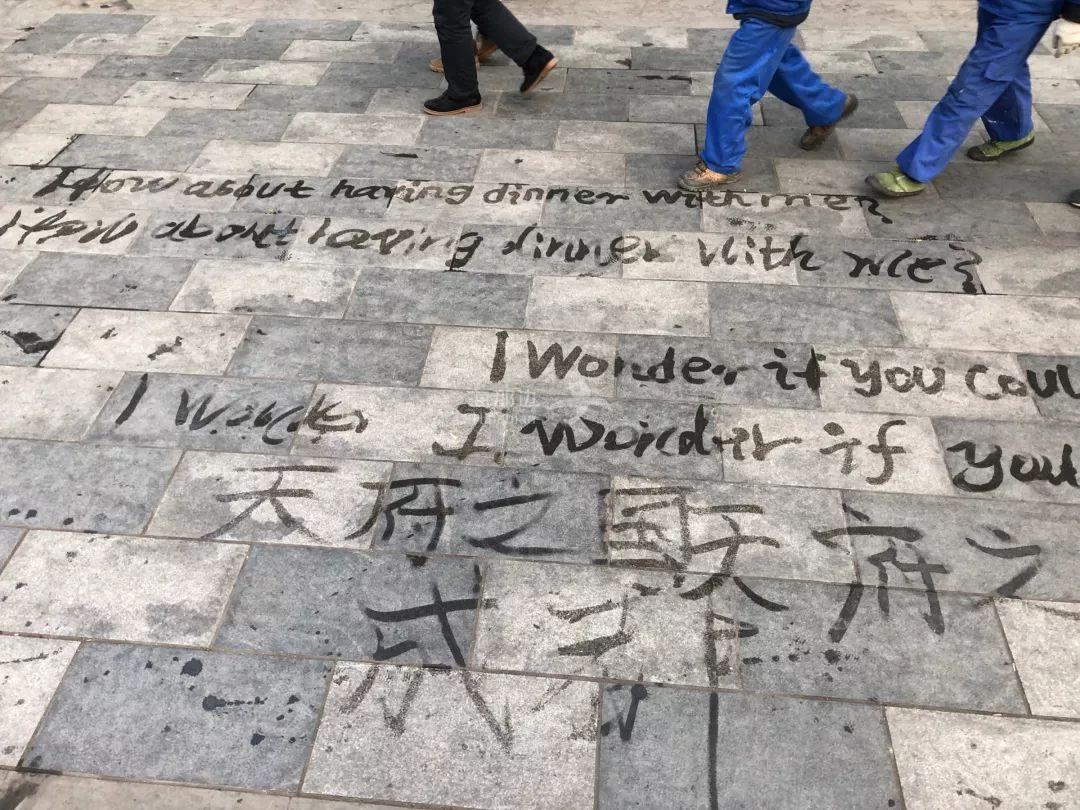 How about having dinner with me?
How about having dinner with me?
I Wonder if you coul
I Wonder I Wonder if you
天府之国天府之
成都